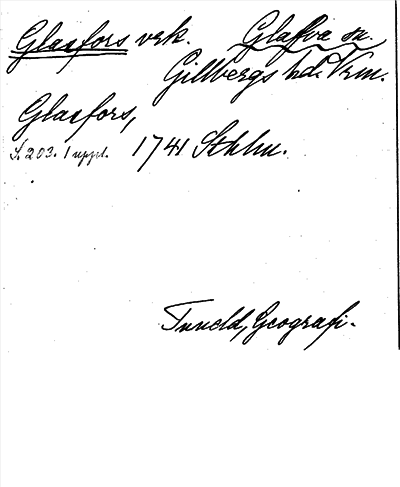 Glasfors verk. Glafva sn.
Gillbergs hd. Vrm.
Glasfors,
S. 203. 1 uppl. 1741 Sthlm.
Tuneld, Geografi.